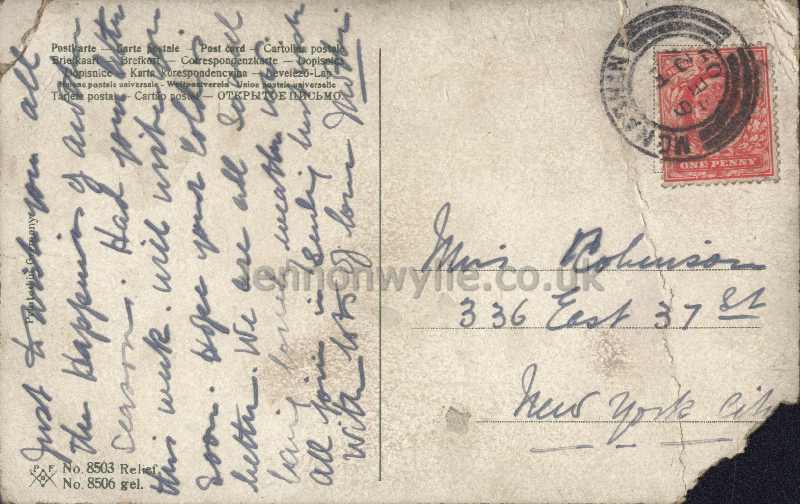 Postkarte — Carte postale — Post card — Cartolina postale
Briefkaart — Brefkort — Correspondenzkarte — Dopisnica
Dopisnice — Karta korespondencyjna — Levelező-Lap
Union postale universelle - Weltpostverein - Union postale universelle
Tarjeta postal — Cartão postal — ОТКРЫТОЕ ПИСЬМО.
Just to wish you all
the happiness of
season. Had your letter
this week. will write you
soon. Hope your cold is
better. We are all well
having lovely weather
all join in sending
with lots of love
Printed in Germany
P F
No. 8503 Relief.
No. 8506 gel.
ONE PENNY
Miss Robinson
336 East 37 St
New York City
lennonwylie.co.uk